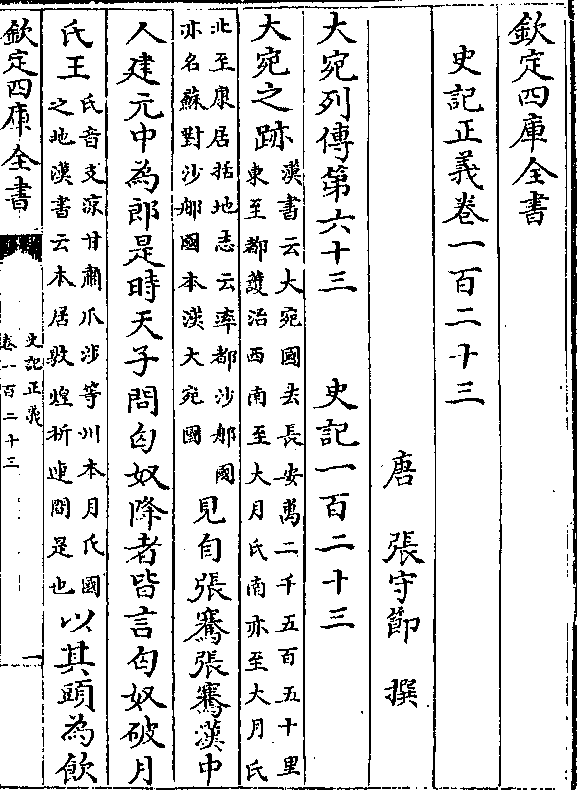 欽定四庫全書
史記正義卷一百二十三
唐 張守節 撰
大宛列傳第六十三 史記一百二十三
大宛之跡 漢書云大宛國去長安萬二千五百五十里 東至都護治西南至大月氏南亦至大月氏
北至康居括地志云率都沙那國 亦名蘇對沙那國本漢大宛國 見自張騫張騫漢中
人建元中為郎是時天子問匈奴降者皆言匈奴破月
氏王 氏音支涼甘肅瓜沙等州本月氏國 之地漢書云本居敦煌祈連間是也 以其頭為飲
欽定四庫全書
史記正義
卷一百二十三
一